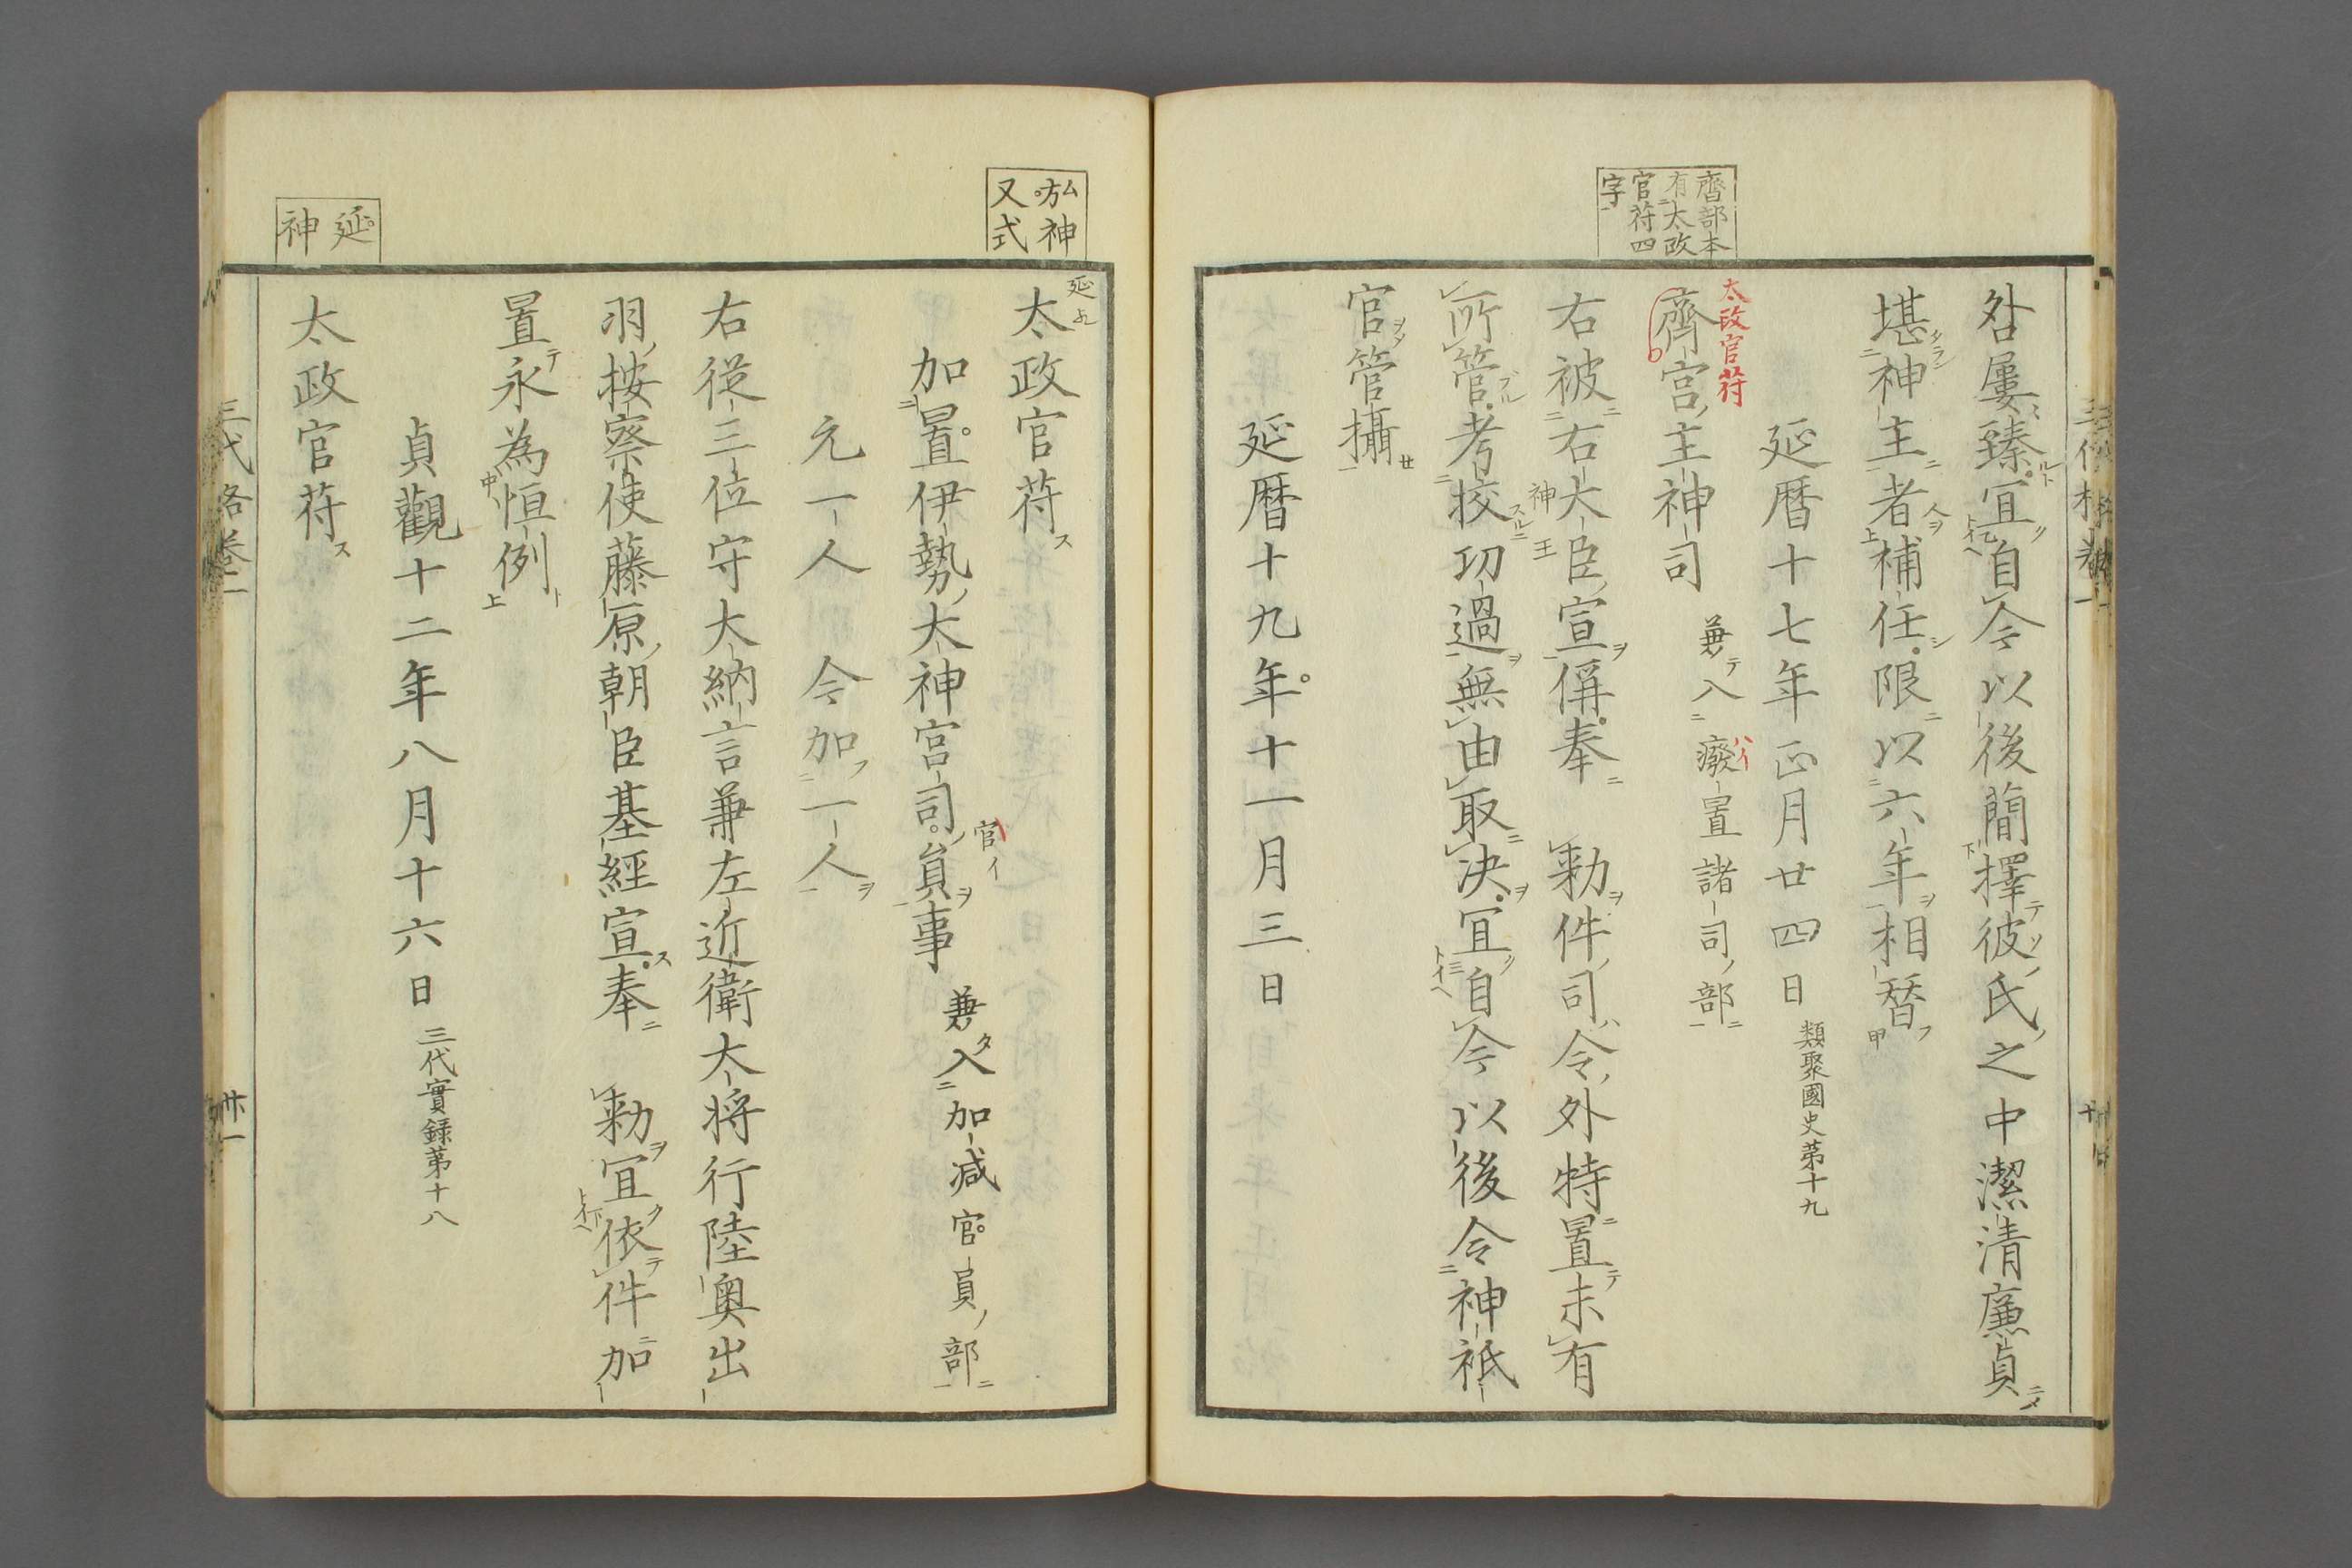 齊部本
有太政
官符四
字
咎屢臻宜自今以後簡擇彼氏之中潔清廉貞
堪神主者補任限以六年相替
延暦十七年正月廿四日 類聚國史第十九
太政官符
齊宮主神司 兼入癈置諸司部
右被右大臣宣偁奉 勅件司令外特置未有
神王
所管考挍功過無由取决宜自今以後令神祇
官管攝
延暦十九年十一月三日
弘神
又式
太政官符
加置伊勢大神宮司員事 兼入加減官員部
官イ
元一人 今加一人
右從三位守大納言兼左近衛大将行陸奥出
羽按察使藤原朝臣基經宣奉 勅宜依件加
置永為恒例
貞觀十二年八月十六日 三代實録第十八
延
神
太政官符
三代格卷一
廿一